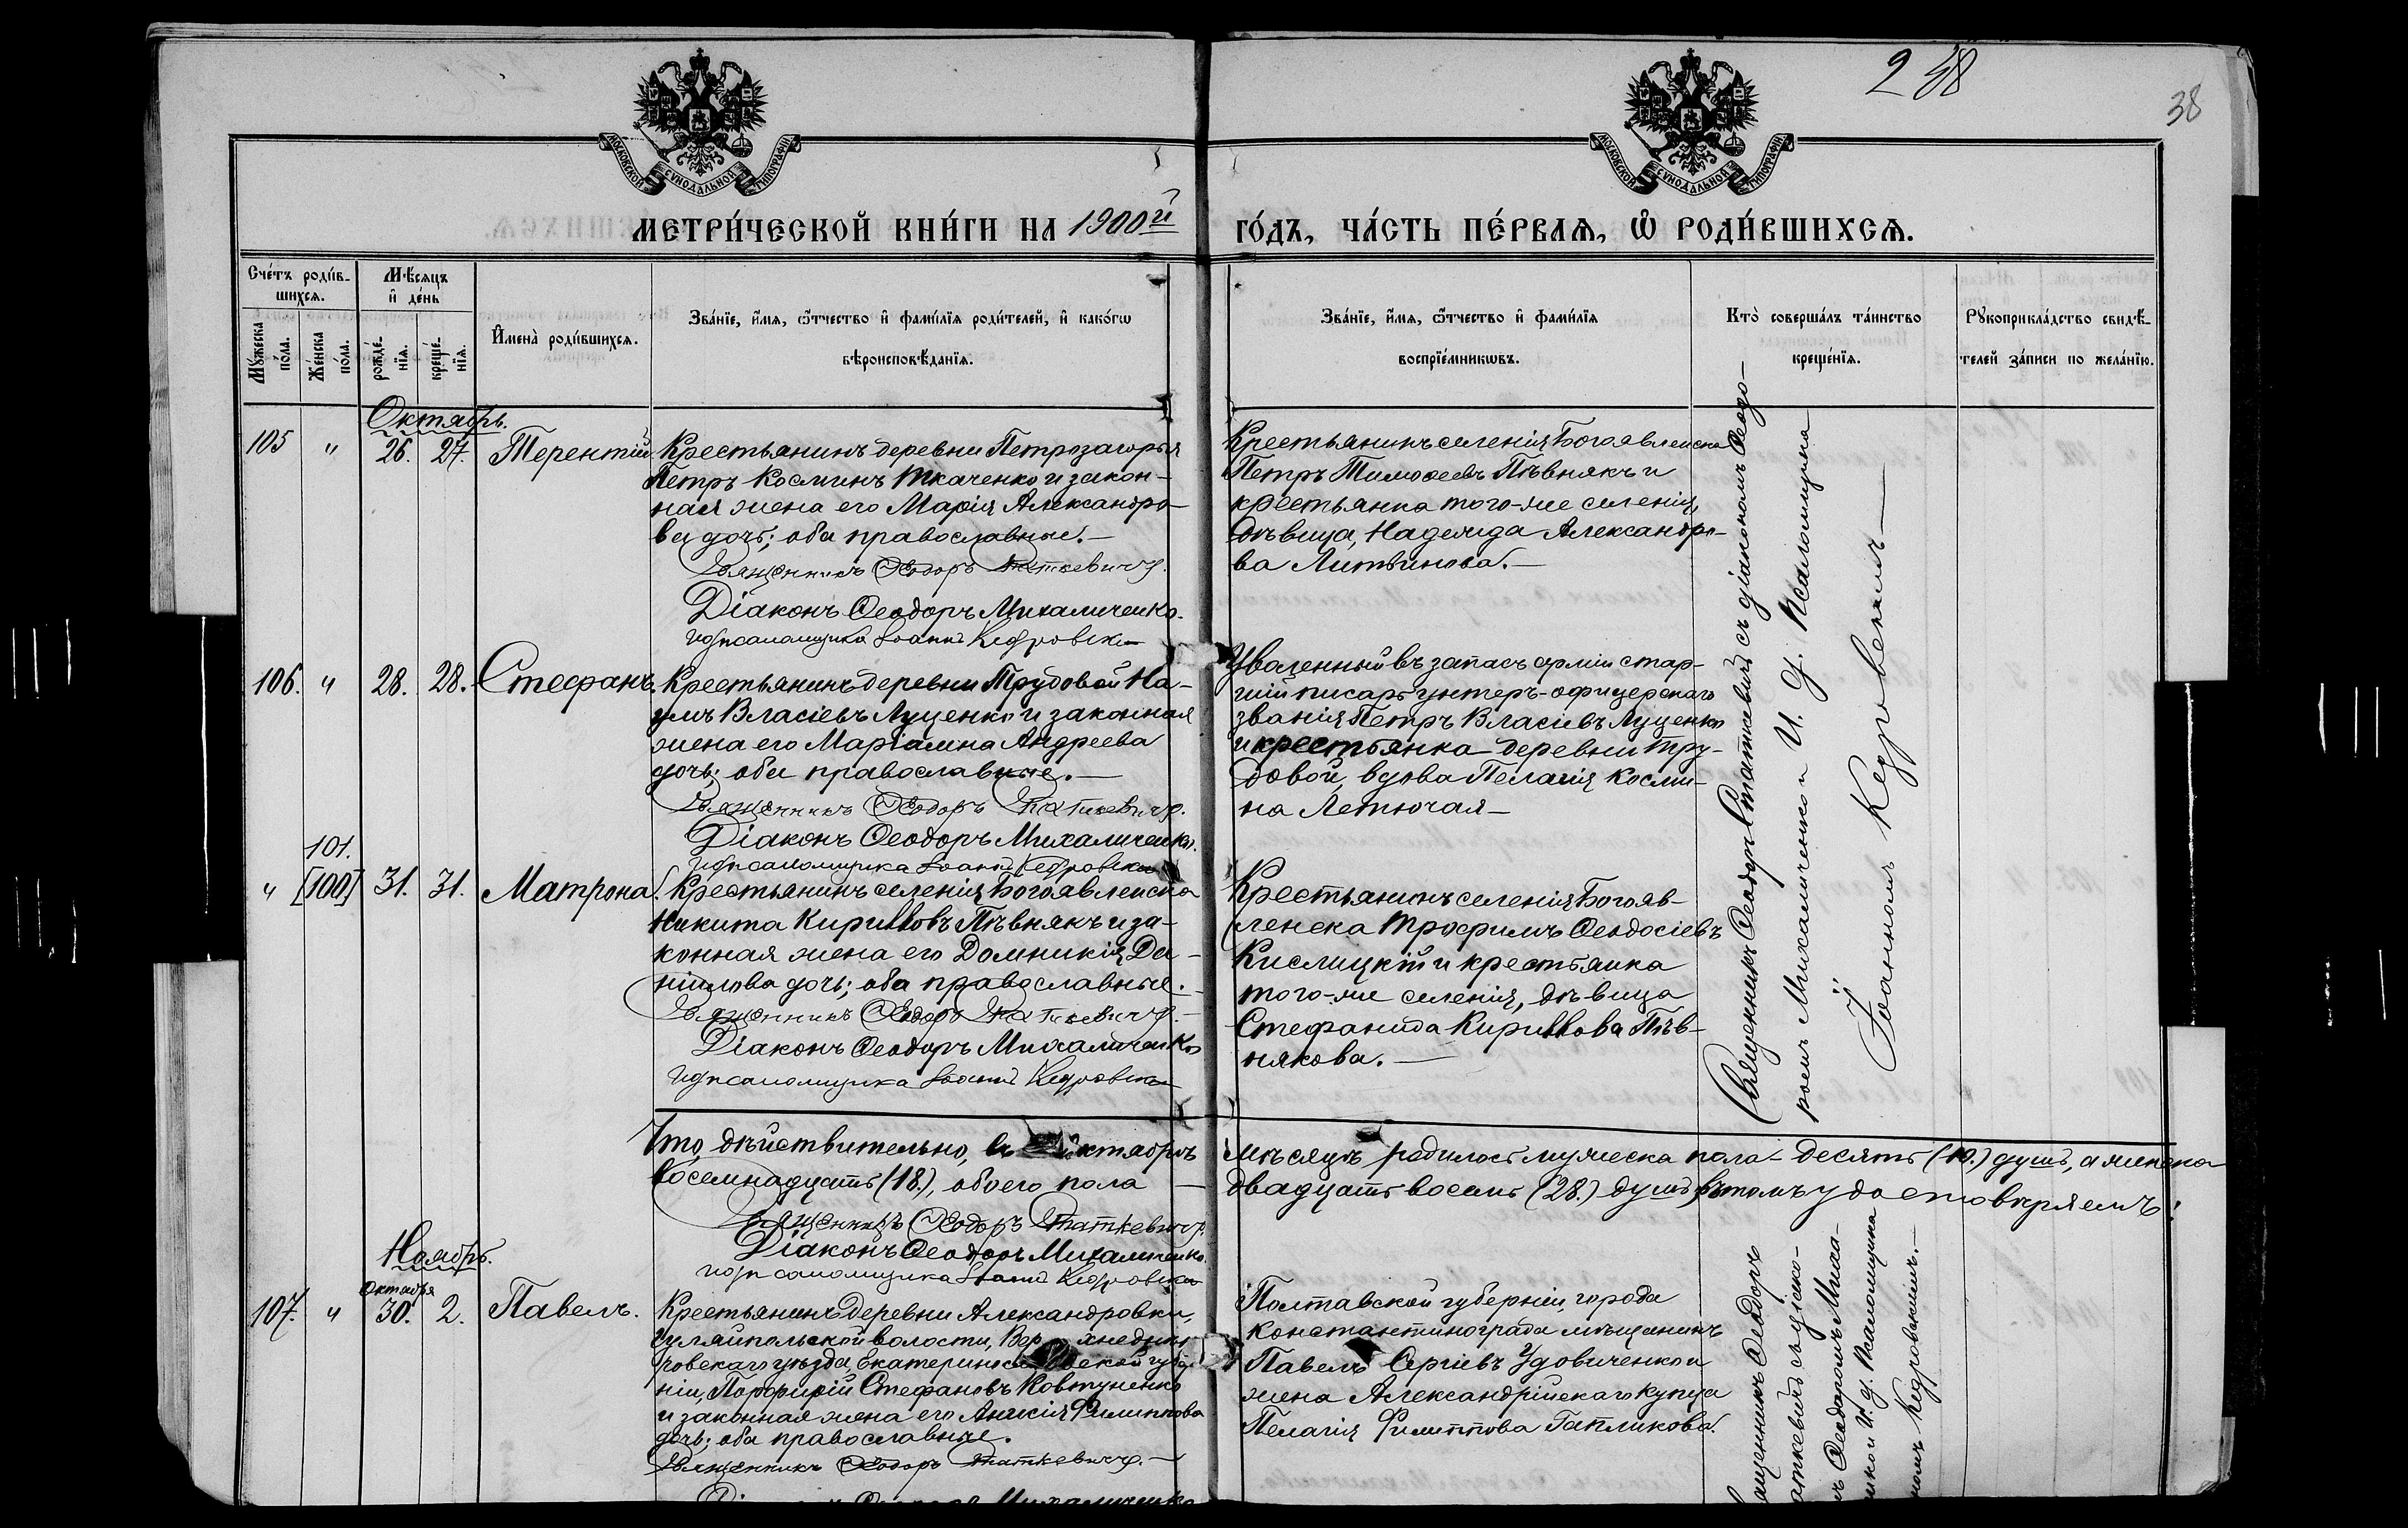 248
38
МОСКОВСКОЙ СѴНОДАЛЬНОЙ ТИПОГРАФІИ
МОСКОВСКОЙ СѴНОДАЛЬНОЙ ТИПОГРАФІИ
МЕТРИ́ЧЕСКОЙ КНИ́ГИ НА 1900й ГО́ДЪ, ЧА́СТЬ ПЕ́РВАѦ, Ѡ҆ РОДИ́ВШИХСѦ.
Сче́тъ роди́в-
шихсѧ.
Мꙋ́жеска
по́ла.
Же́нска
по́ла.
Мѣ́сѧцъ
и҆ де́нь
рожде́-
нїѧ.
креще́-
нїѧ.
И҆мена̀ роди́вшихсѧ.
Зва́нїе, и҆́мѧ, ѻ҆́тчество и҆ фами́лїѧ роди́телей, и҆ како́гѡ
вѣроисповѣ́данїѧ.
Зва́нїе, и҆́мѧ, ѻ҆́тчество и҆ фами́лїѧ
воспрїе́мникѡвъ.
Кто̀ соверша́лъ та́инство
креще́нїѧ.
Рꙋкоприкла́дство свидѣ́-
телей за́писи по жела́нїю.
Октябрь.
105 " 26. 27. Терентій.
Крестьянинъ деревни Петрозагорья
Петръ Косминъ Ткаченко и закон-
ная жена его Марія Александро-
ва дочь; оба православные.—
Священникъ Ѳеодоръ Статкевичъ.
Діаконъ Ѳеодоръ Михаличенко.
И д псаломщика Іоаннъ Кедровскій
Крестьянинъ селенія Богоявленска
Петръ Тимоѳеевъ Пѣвнякъ и
крестьянка того-же селенія,
дѣвица, Надежда Александро-
ва Литвинова.—
106. " 28. 28. Стефанъ.
Крестьянинъ деревни Трудовой На-
умъ Власіевъ Луценко и законная
жена его Маріамна Андреева
дочь; оба православные.—
Священникъ Ѳеодоръ Статкевичъ.
Діаконъ Ѳеодоръ Михаличенко.
И д псаломщика Іоаннъ Кедровскій
Уволенный въ запасъ арміи стар-
шій писарь унтеръ-офицерскаго
званія Петръ Власіевъ Луценко
и крестьянка деревни Тру-
довой, вдова Пелагія Косми-
на Летючая—
101.
" [100] 31. 31. Матрона.
Крестьянинъ селенія Богоявленска
Никита Кирилловъ Пѣвнякъ и за-
конная жена его Домникія Да-
ніилова дочь; оба православные.
Священникъ Ѳеодоръ Статкевичъ.—
Діаконъ Ѳеодоръ Михаличенко
И д псаломщика Іоаннъ Кедровскій
Крестьянинъ селенія Богояв-
ленска Трофимъ Ѳеодосіевъ
Кислицкій и крестьянка
того-же селенія, дѣвица
Стефанида Кириллова Пѣв-
някова.—
Священникъ Ѳеодоръ Статкевичъ съ діакономъ Ѳеодо-
ромъ Михаличенко и И. д. Псаломщика
Іоанномъ Кедровскимъ—
Что, дѣйствительно, въ Октябрѣ мѣсяцѣ родилось мужеска пола - десять (10.) душъ, а женска
восемнадцать (18.), обоего пола — двадцать восемь (28.) душъ, въ томъ удостовѣряемъ:
Священникъ Ѳеодоръ Статкевичъ.
Діаконъ Ѳеодоръ Михаличенко.
И д псаломщика Іоаннъ Кедровскій
Ноябрь.
Октября
107. " 30. 2. Павелъ.
Крестьянинъ деревни Александровки,
Гуляйпольской волости, Верхнеднѣп-
ровскаго уѣзда, Екатеринославской губер-
ніи, Порфирій Стефановъ Ковтуненко
и законная жена его Анисія Филиппова
дочь; оба православные.
Священникъ Ѳеодоръ Статкевичъ.—
Діаконъ Ѳеодоръ Михаличенко
Полтавской губерніи, города
Константинограда мѣщанинъ
Павелъ Сергіевъ Удовиченко и
жена Александрійскаго купца
Пелагія Филиппова Гапликова.
Священникъ Ѳеодоръ
Статкевичъ съ діако-
номъ Ѳеодоромъ Миха-
личенко и И. д. Псаломщика
Іоанномъ Кедровскимъ.—